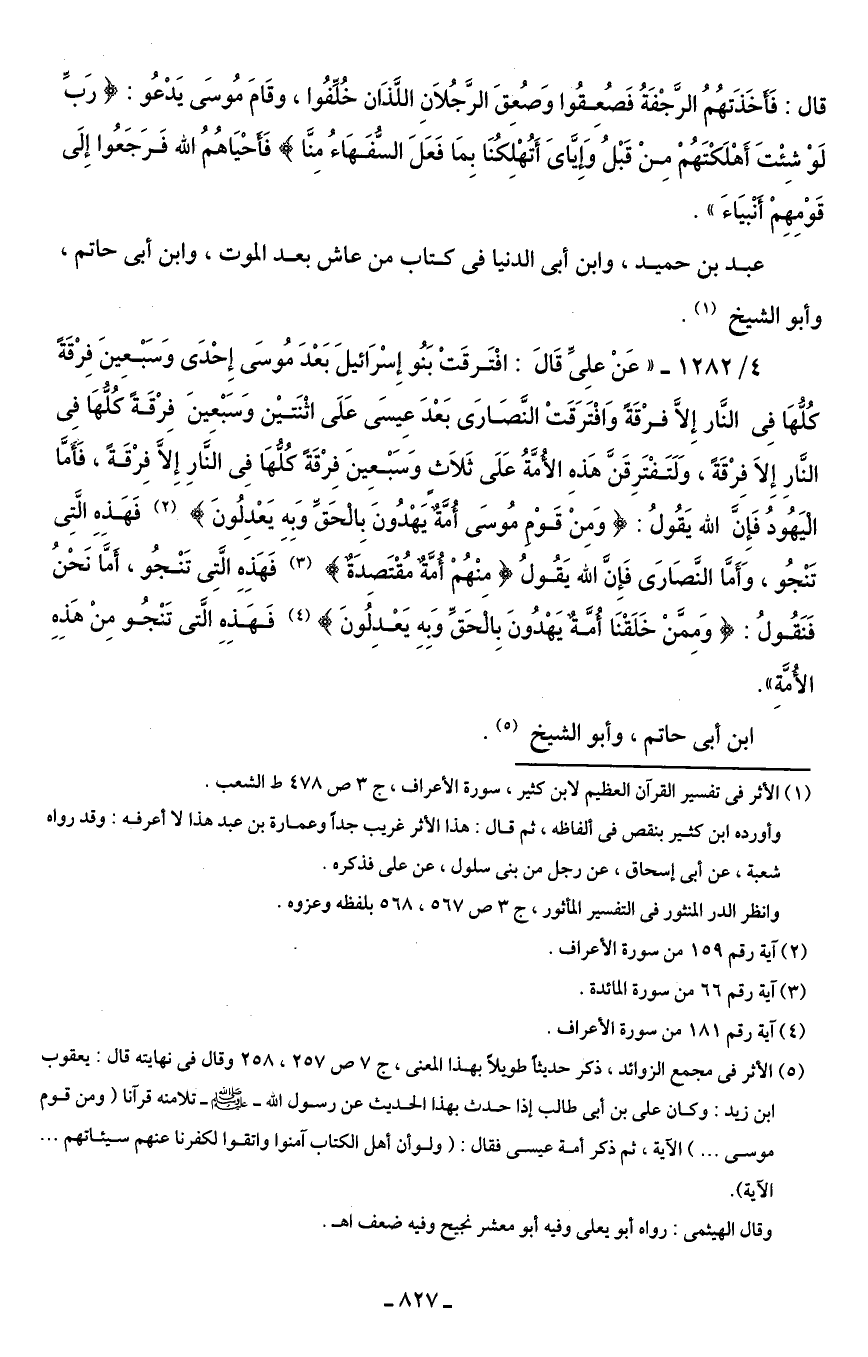 قال : فَأَخَذَتهُمُ الرَّجْفَةُ فَصُعِقُوا وَصُعِقَ الرَّجُلاَنِ اللَّذَان خُلِّفُوا ، وقَامَ مُوسَى يَدْعُو : ﴿ رَبِّ
لَوْ شِئْتَ أَهْلَكْتَهُمْ مِنْ قَبْلُ وَإِيَّاىَ أَتُهْلِكُنَا بِمَا فَعَلَ السُّفَهَاءُ مِنَّا ﴾ فَأَحْيَاهُمُ الله فَرَجَعُوا إِلَى
قَوْمِهِمْ أَنْبِيَاءَ » .
عبد بن حميد ، وابن أبى الدنيا فى كتاب من عاش بعد الموت ، وابن أبى حاتم ،
وأبو الشيخ (١) .
٤/ ١٢٨٢ ـ « عَنْ عَلِىٍّ قَالَ : افْتَرقَتْ بَنُو إِسْرَائيلَ بَعْدَ مُوسَى إِحْدَى وَسَبْعِينَ فِرْقَةً
كُلُّهَا فِى النَّارِ إِلاَّ فِرْقَةً وَافْتَرَقَتْ النَّصَارَى بَعْدَ عِيسَى عَلَى اثْنَتَيْنِ وَسَبْعِينَ فِرْقَةً كُلُّهَا فِى
النَّارِ إِلاَ فِرْقَةً ، وَلَتَفْتَرِقَنَّ هَذِهِ الأُمَّةُ عَلَى ثَلاَثٍ وَسَبْعِينَ فِرْقَةً كُلُّهَا فِى النَّارِ إِلاَّ فِرْقَةً ، فَأَمَّا
الْيَهُودُ فَإِنَّ الله يَقُولُ : ﴿ وَمِنْ قَوْمِ مُوسَى أُمَّةٌ يَهْدُونَ بِالْحَقِّ وَبِهِ يَعْدِلُونَ ﴾ (٢) فَهَذِهِ الَّتِى
تَنْجُو ، وَأَمَّا النَّصَارَى فَإِنَّ الله يَقُولُ ﴿ مِنْهُمْ أُمَّةٌ مُقْتَصِدَةٌ ﴾ (٣) فَهَذِهِ الَّتِى تَنْجُو ، أَمَّا نَحْنُ
فَنَقُولُ : ﴿ وَمِمَّنْ خَلَقْنَا أُمَّةٌ يَهْدُونَ بِالْحَقِّ وَبِهِ يَعْدِلُونَ ﴾ (٤) فَهَذِهِ الَّتِى تَنْجُو مِنْ هَذِهِ
الأُمَّةِ».
ابن أبى حاتم ، وأبو الشيخ (٥) .
(١) الأثر فى تفسير القرآن العظيم لابن كثير ، سورة الأعراف ، ج ٣ ص ٤٧٨ ط الشعب .
وأورده ابن كثير بنقص فى ألفاظه ، ثم قال : هذا الأثر غريب جداً وعمارة بن عبد هذا لا أعرفه : وقد رواه
شعبة ، عن أبى إسحاق ، عن رجل من بنى سلول ، عن على فذكره .
وانظر الدر المنثور فى التفسير المأثور ، ج ٣ ص ٥٦٧ ، ٥٦٨ بلفظه وعزوه .
(٢) آية رقم ١٥٩ من سورة الأعراف .
(٣) آية رقم ٦٦ من سورة المائدة .
(٤) آية رقم ١٨١ من سورة الأعراف .
(٥) الأثر فى مجمع الزوائد ، ذكر حديثاً طويلاً بهذا المعنى ، ج ٧ ص ٢٥٧ ، ٢٥٨ وقال فى نهايته قال : يعقوب
ابن زيد : وكان على بن أبى طالب إذا حدث بهذا الحديث عن رسول الله ـ ﷺ ـ تلامنه قرآنا ( ومن قوم
موسى ... ) الآية ، ثم ذكر أمة عيسى فقال : ( ولوأن أهل الكتاب آمنوا واتقوا لكفرنا عنهم سيئاتهم ...
الآية).
وقال الهيثمى : رواه أبو يعلى وفيه أبو معشر نجيح وفيه ضعف اهـ .
ـ ٨٢٧ ـ